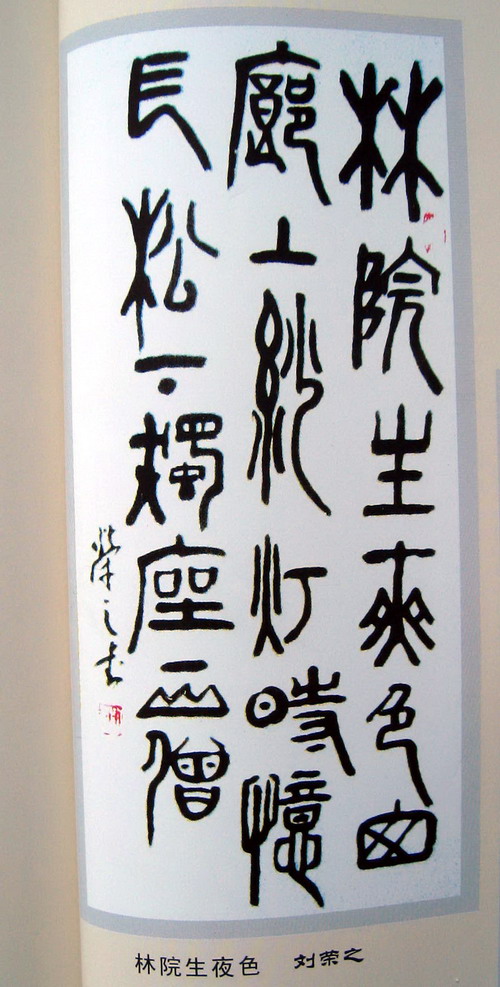 林院生夜色西
廊上紗灯時憶
長松下獨座一山僧
榮之书
林院生夜色 刘荣之